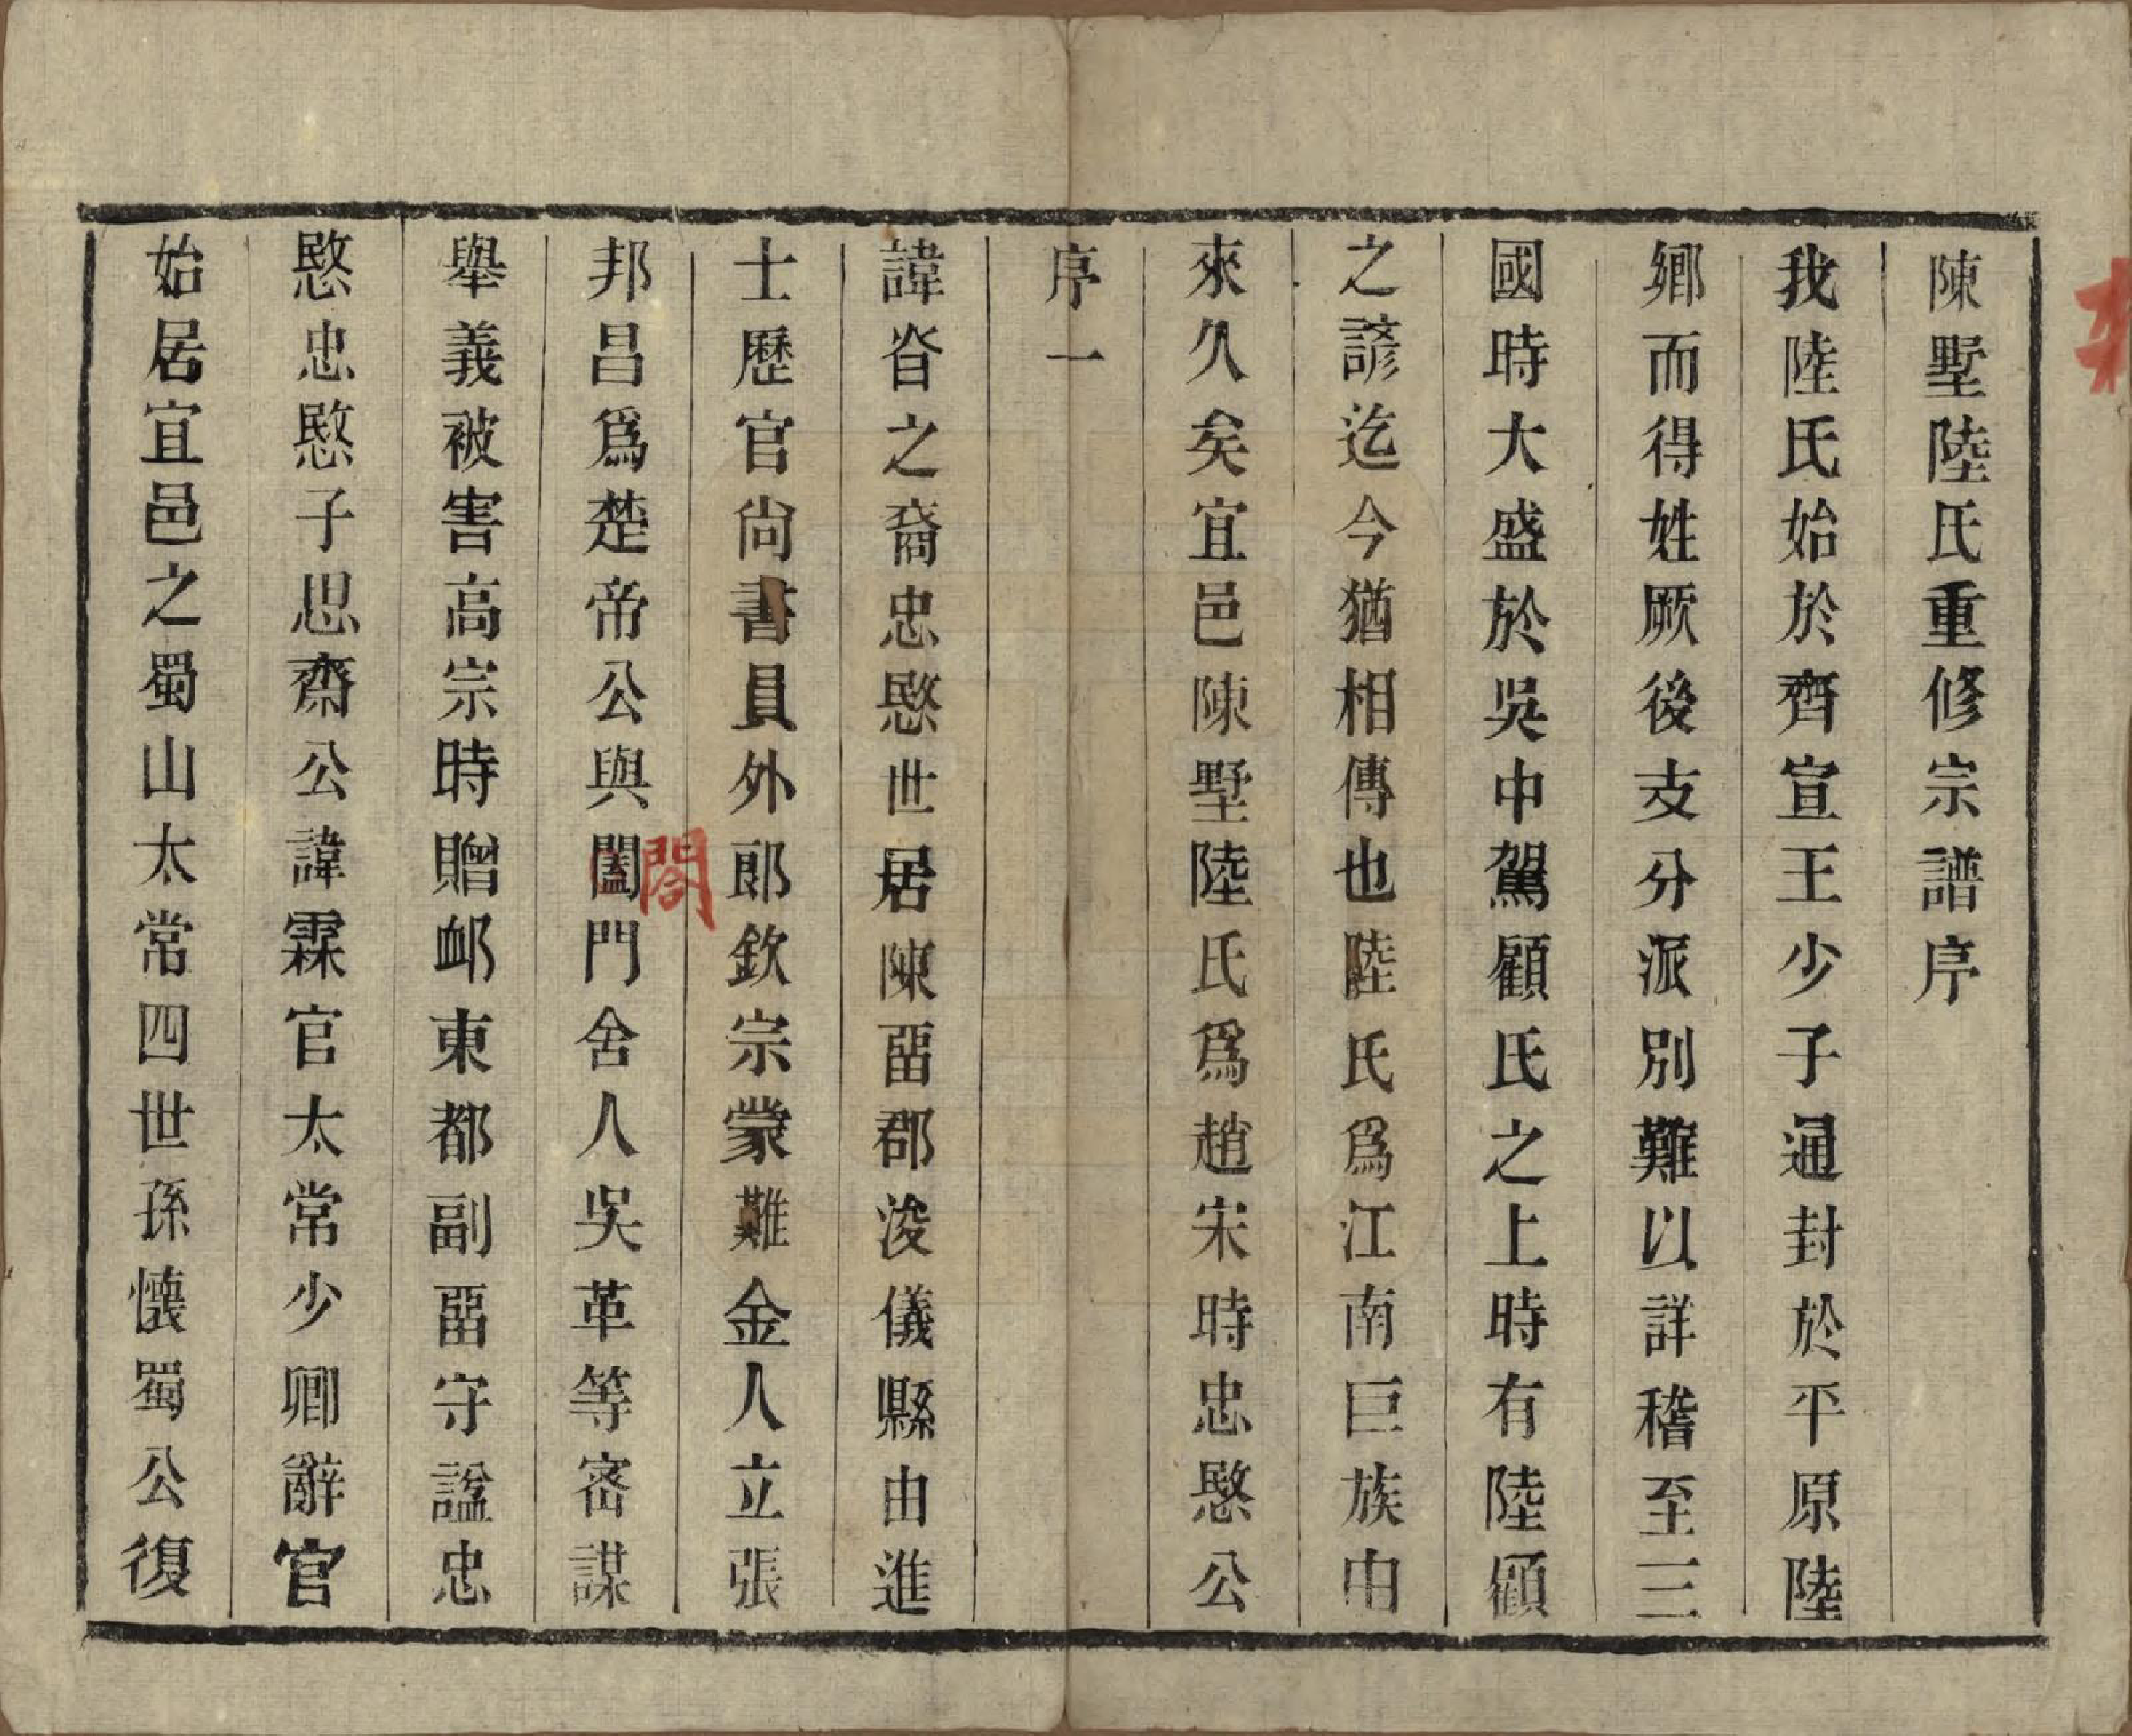 陳墅陸氏重修宗譜序
我陸氏始於齊宣王少子通封於平原陸
鄉而得姓厥後支分派別難以詳稽至三
國時大盛於吳中駕顧氏之上時有陸顧
之諺迄今猶相傳也陸氏爲江南巨族由
來久矣宜邑陳墅陸氏爲趙宋時忠愍公
序一
諱昝之裔忠愍世居陳畱郡浚儀縣由進
士歷官尚書員外郎欽宗蒙難金人立張
邦昌爲楚帝公與闔門舍人吳革等密謀
閤
舉義被害高宗時贈卹東都副畱守諡忠
愍忠愍子思齋公諱霖官太常少卿辭官
始居宜邑之蜀山太常四世孫懷蜀公復